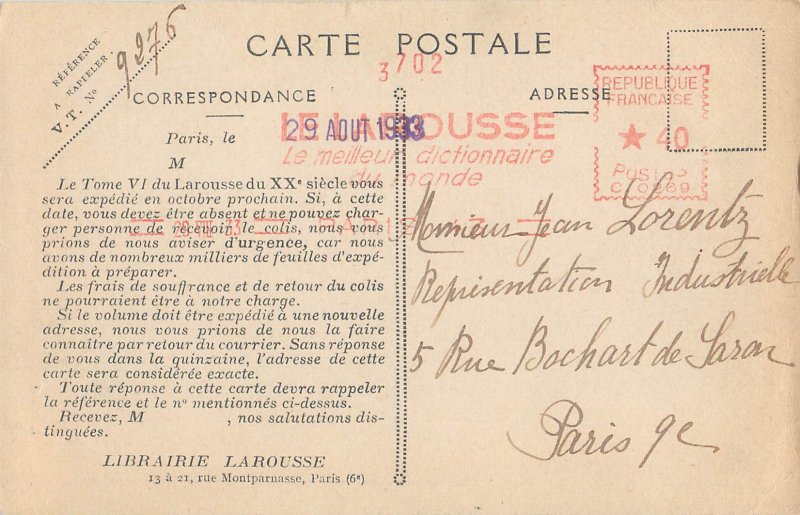 RÉFÉRENCE
A RAPPELER
V. T. Nº 9276
CARTE POSTALE
3702
CORRESPONDANCE
ADRESSE
REPUBLIQUE
FRANÇAISE
★ 40
POSTES
C. 0269
LE LAROUSSE
Le meilleur dictionnaire
du monde
Paris, le 29 AOUT 1933
M
Le Tome VI du Larousse du XXe siècle vous
sera expédié en octobre prochain. Si, à cette
date, vous devez être absent et ne pouvez char-
ger personne de recevoir le colis, nous vous
prions de nous aviser d'urgence, car nous
avons de nombreux milliers de feuilles d'expé-
dition à préparer.
Les frais de souffrance et de retour du colis
ne pourraient être à notre charge.
Si le volume doit être expédié à une nouvelle
adresse, nous vous prions de nous la faire
connaître par retour du courrier. Sans réponse
de vous dans la quinzaine, l'adresse de cette
carte sera considérée exacte.
Toute réponse à cette carte devra rappeler
la référence et le nº mentionnés ci-dessus.
Recevez, M , nos salutations dis-
tinguées.
LIBRAIRIE LAROUSSE
13 à 21, rue Montparnasse, Paris (6e)
Monsieur Jean Lorentz
Représentation Industrielle
5 Rue Bochart de Saron
Paris 9e